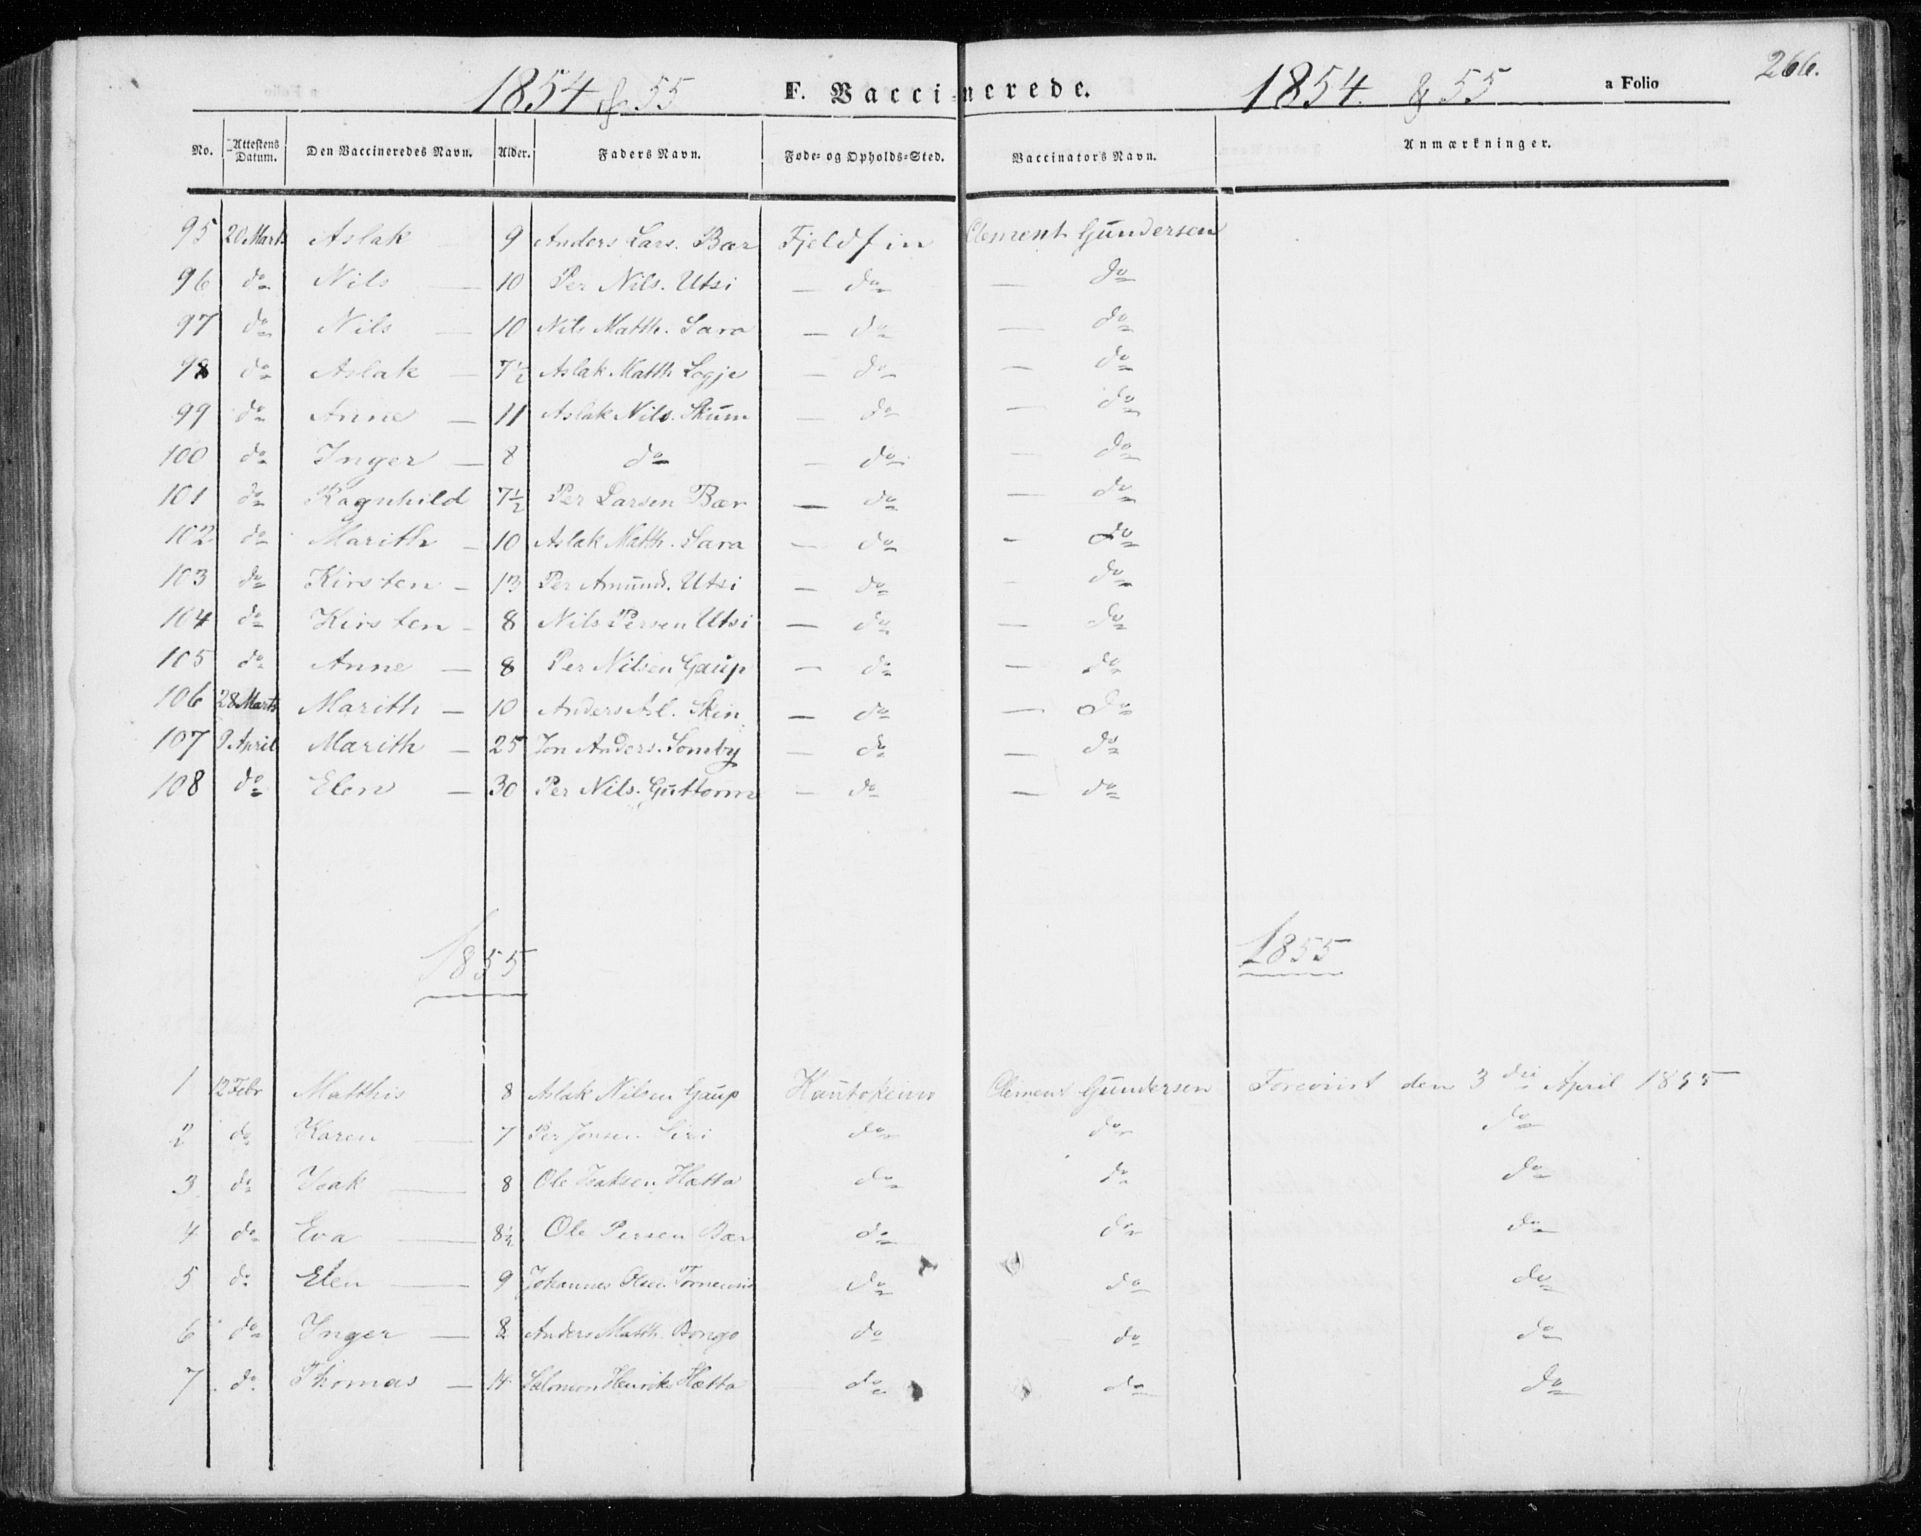 266.
1854 & 55 F. Vaccinerede. 1854. & 55 a Folio
No. Attestens Datum. Den Vaccineredes Navn. Alder. Faders Navn. Føde- og Opholds-Sted. Vaccinators Navn. Anmærkninger.
95 20 Marts Aslak 9 Anders Lars. Bær Fjeldfin Clement Gundersen
96 do Nils — 10 Per Nils. Utsi — do — do
97 do Nils — 10 Nils Matth. Sara — do — do
98 do Aslak — 7½ Aslak Matth Logje — do — do
99 do Anne — 11 Aslak Nils. Skum — do — do
100 do Inger — 8 do — do — do
101 do Ragnhild 7½ Per Larsen Bær — do — do
102 do Marith — 10 Aslak Matth. Sara — do — do
103 do Kirsten — 13 Per Amund. Utsi — do — do
104 do Kirsten — 8 Nils Persen Utsi — do — do
105 do Anne — 8 Per Nilsen Gaup — do — do
106 28 Marts Marith — 10 Anders Asl. Skin — do — do
107 9 April Marith — 25 Jon Anders. Somby — do — do
108 do Elen — 30 Per Nils. Guttorm — do — do
1855 1855
1 12 Febr Matthis 8 Aslak Nilsen Gaup Kautokeino Clement Gundersen Foreviist den 3die April 1855
2 do Karen — 7 Per Jonsen Siri do do do
3 do Isak — 8 Ole Isaksen Hætta do do do
4 do Eva — 8½ Ole Persen Bær do do do
5 do Elen — 9 Johannes Olsen Tornensis do do do
6 do Inger — 8 Anders Matth. Bongo do do do
7 do Thomas — 14 Salomon Henriks Hætta do do do